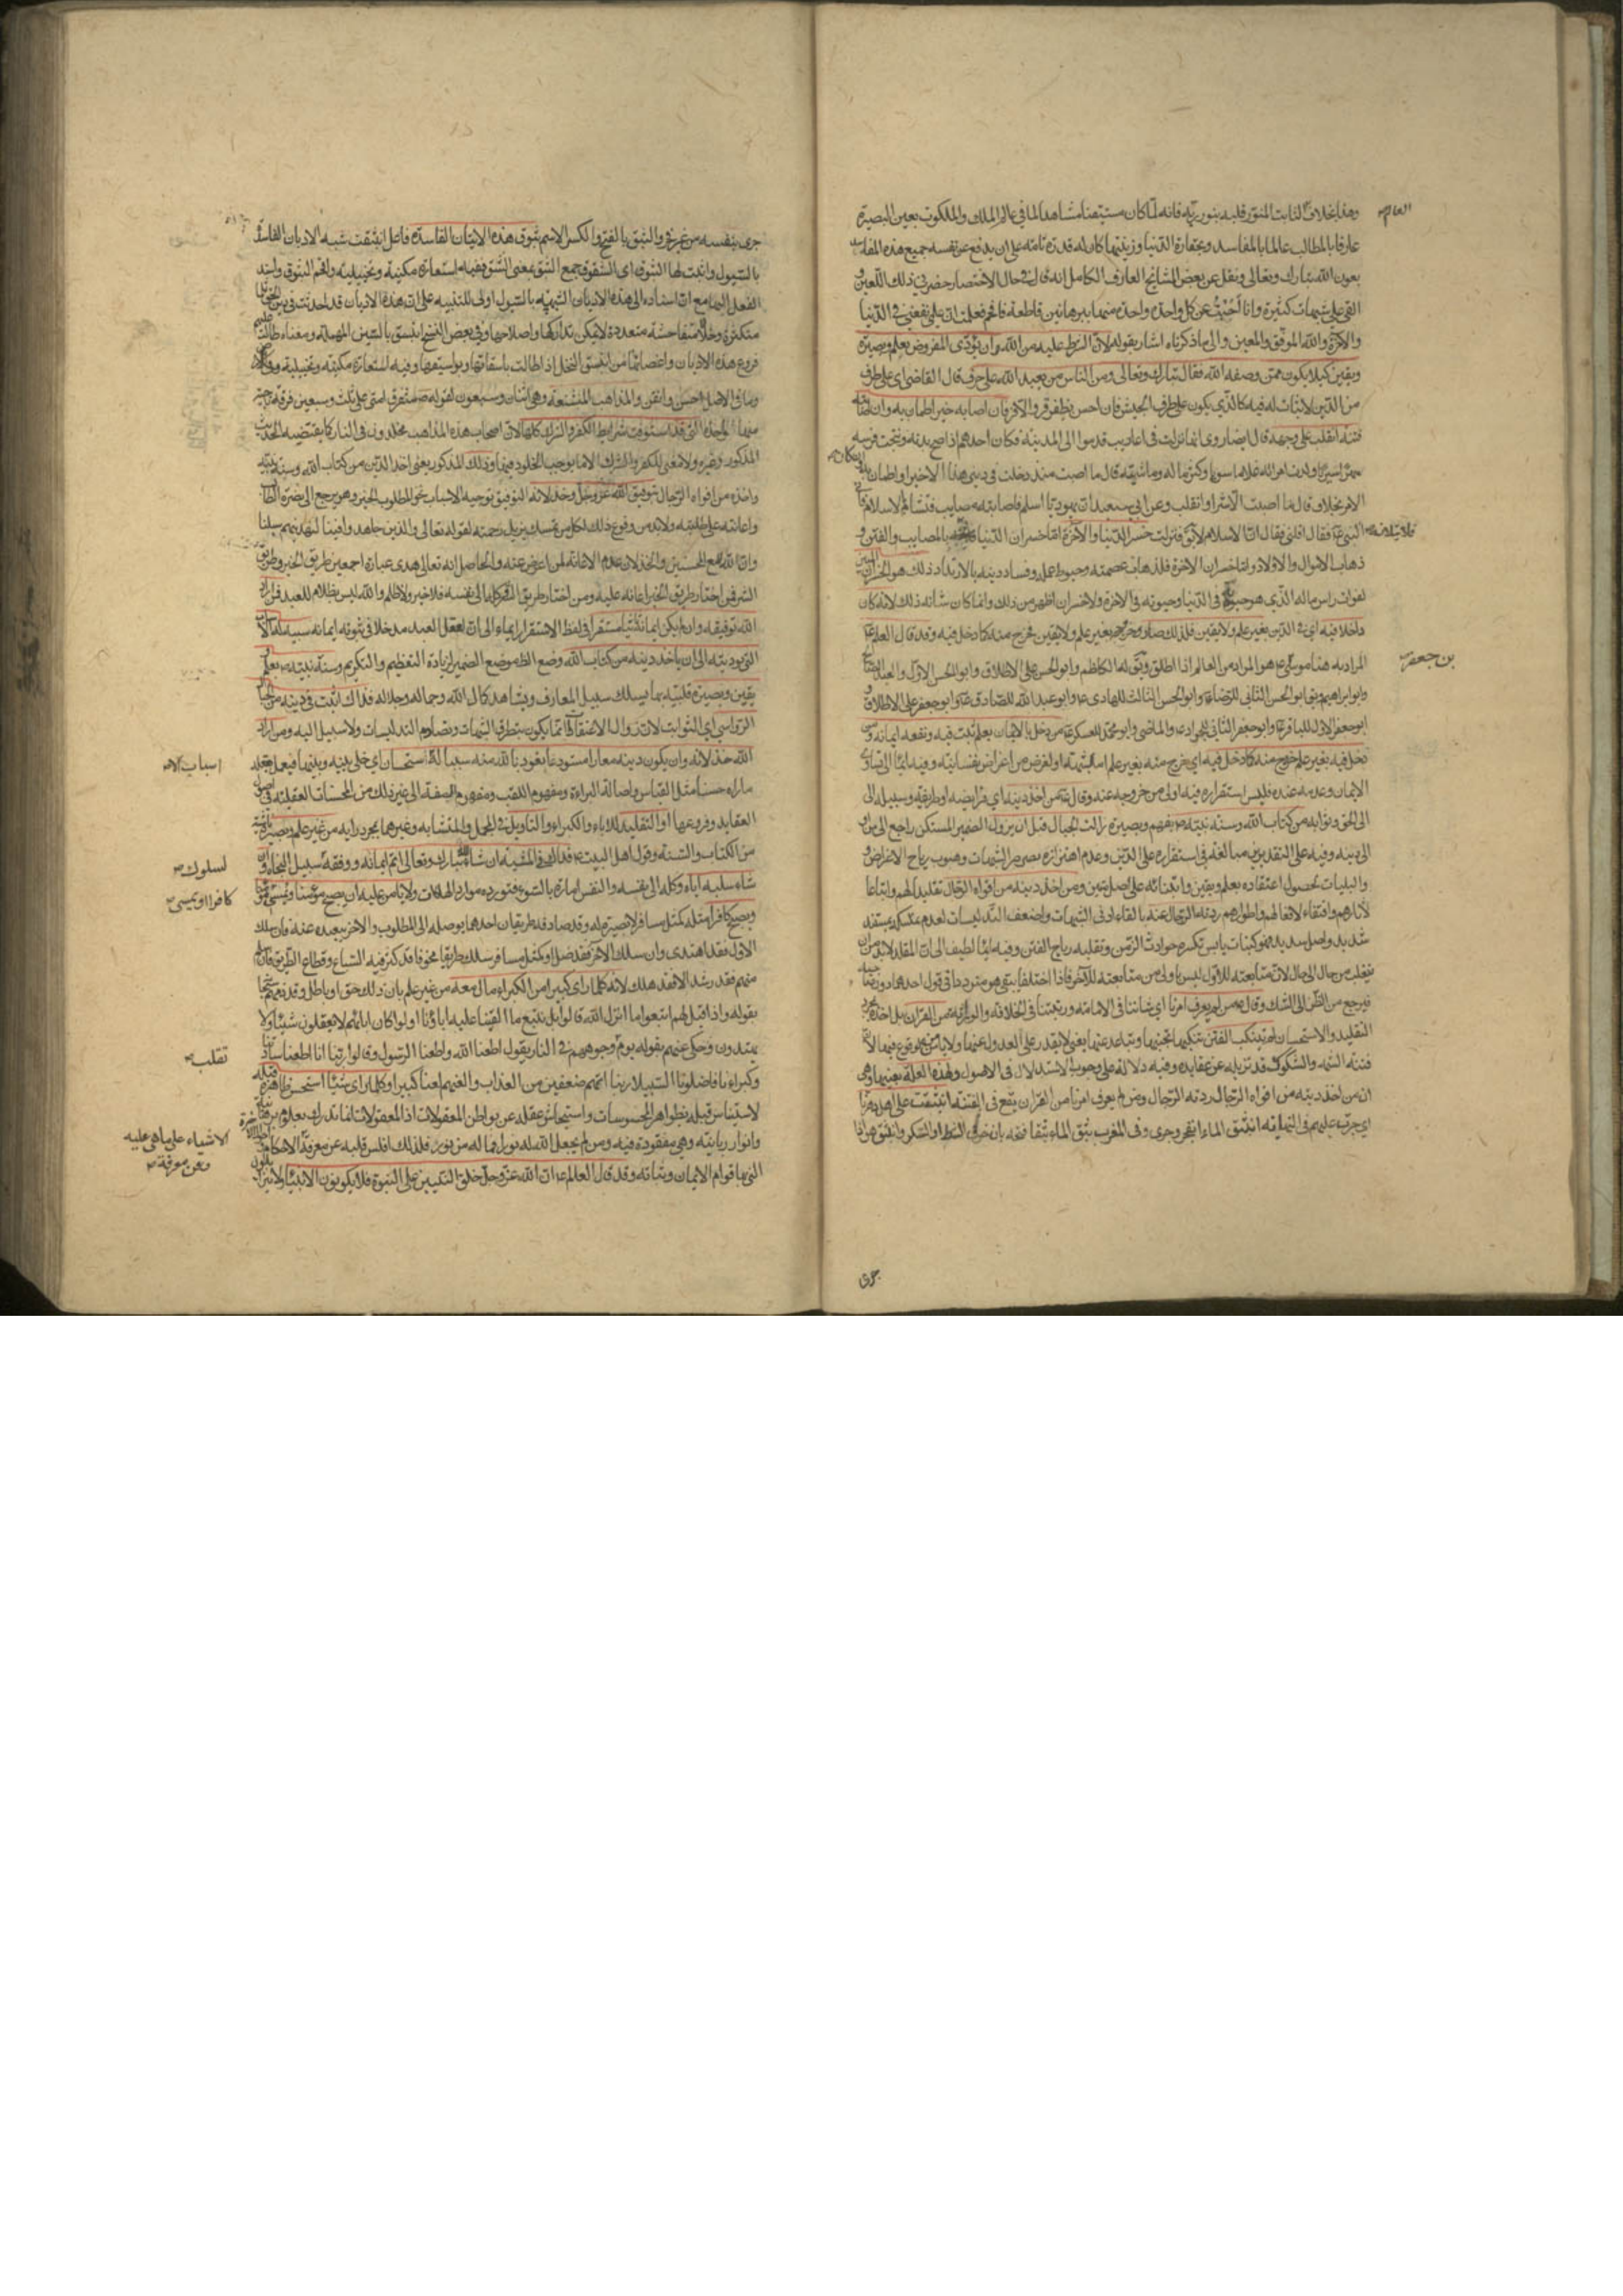 وهذا بخلاف الثابت المنوّر قلبه بنور ربّه فانه لمّا كان مستيقنا مشاهدا لما في عالم الملك والملكوت بعين البصيرة
العالم
عارفا بالمطالب عالما بالمفاسد وبحقارة الدّنيا وزينتها كان له قدرة تامّة على ان يدفع عن نفسه جميع هذه المفاسد
بعون اللّه تبارك وتعالى ونقل عن بعض المشايخ العارف الكامل انه قال في حال الاحتضار حضرني ذلك اللّعين و
القى علىّ شبهات كثيرة وانا أجبت عن كل واحدة واحدة منها ببرهانين قاطعة فافحم فعلمت ان علمي نفعني في الدّنيا
والآخرة واللّه الموفّق والمعين والى ما ذكرناه اشار بقوله لانّ الشرط عليه من اللّه وان يؤدّى المفروض بعلم وبصيرة
ويقين كيلا يكون ممّن وصفه اللّه فقال تبارك وتعالى ومن الناس من يعبد اللّه على حرف قال القاضى اى على طرف
من الدّين لاثبات له فيه كالذّي يكون على طرف الجيش فان احس بظفر قر والا فر فان اصابه خير اطمان به وان اصابته
فتنة انقلب على وجهه قال ايضا روى انها نزلت في اعاريب قدموا الى المدينة فكان احدهم اذا صح بدنه ونتجت فرسه
مهرا سريّا وولدت امراته غلاما سويا وكثر ماله وماشيته قال ما اصبت منذ دخلت في دينى هذا الا خيرا واطمان
وان كان
الامر بخلافه قال ما اصبت الّا شرا وانقلب وعن ابي سعيد ان يهوديا اسلم فاصابته مصايب فتشأم بالاسلام فاتى
النبى ص فقال اقلنى فقال انّ الاسلام لايق فنزلت خسر الدّنيا والآخرة امّا خسران الدّنيا بالمصايب والفتن و
فلاقلاقه
ذهاب الاموال والاولاد وامّا خسران الاخرة فلذهاب عصمته وحبوط عمله وفساد دينه بالارتداد ذلك هو الخسران المبين
لفوات راس ماله الذّي هو حيوته في الدّنيا وحيوته في الآخرة ولا خسران اظهر من ذلك وانما كان شانه ذلك لانه كان
داخلا فيه اى في الدّين بغير علم ولا يقين فلذلك صار خروجه بغير علم ولا يقين فخرج منه كما دخل فيه وقد قال العالم ع
المراد به هنا موسى ع هو المراد من العالم اذا اطلق ويق له الكاظم وابو الحسن على الاطلاق وابو الحسن الاوّل والعبد الصالح
بن جعفر
وابو ابراهيم ويق ابو الحسن الثاني للرّضا ع وابو الحسن الثالث للهادى ع وابو عبد اللّه للصّادق ع وابو جعفر على الاطلاق و
ابو جعفر الاول للباقر ع وابو جعفر الثاني للجواد ع والماضى وابو محمّد للعسكرى ع من دخل في الايمان بعلم ثبت فيه ونفعه ايمانه ومن
دخل فيه بغير علم خرج منه كما دخل فيه اى خرج منه بغير علم اما لشبهة او لغرض من اغراض نفسانيّة وفيه ايماء الى تساوى
الايمان وعدمه عنده فليس استقراره فيه اولى من خروجه عنه وقال ع من اخذ دينه اى فرايضه او طريقه وسبيله الى
الى الحق وثوابه من كتاب اللّه وسنّة نبيّه ص بفهم وبصيرة زالت الجبال قبل ان يزول الضمير المستكن راجع الى من او
الى دينه وفيه على التقديرين مبالغة في استقراره على الدّين وعدم اهتزازه بصرصر الشبهات وهبوب رياح الاغراض
والبليات لحصول اعتقاده بعلم ويقين وابتنائه على اصل متين ومن اخذ دينه من افواه الرّجال تقليدا لهم واتباعا
لآثارهم واقتفاء لافعالهم واطوارهم ردّته الرّجال عنه بالقاء ادنى الشبهات واضعف التّدليسات لعدم تمسّكه بمستند
شديد واصل سديد فهو كنبات يابس تكسره حوادث الزّمن وتقلبه رياح الفتن وفيه ايماء لطيف الى انّ المقلد لابد من ان
ينقلب من حال الى حال لان متابعته للاوّل ليس باولى من متابعته للآخر فاذا اختلفا بقى هو مترددا في قول احدهما دون صاحبه
فيرجع من الظّن الى الشك وقال ع من لم يعرف امرنا اى شاننا في الامامة ورتبتنا في الخلافة والوراثة من القران بل اخذه بمجرد
التقليد والاستحسان لم يتنكب الفتن تنكبها تجنبها وتباعد عنها يعنى لا يقدر على العدول عنها ولا يامن من الوقوع فيها لانّ
فتنة الشبه والشكوك قد تزيله عن عقايده وفيه دلالة على وجوب الاستدلال في الاصول ولهذه العلّة بعينها وهى
ان من اخذ دينه من افواه الرّجال ردته الرّجال ومن لم يعرف امرنا من القران يقع في الفتنة انبثقت على اهل دهرنا
اى جرت عليهم في النهاية انبثق الماء انفجر وجرى وفي المغرب بثق الماء بثقا فتحه بان خرق الشط او السكر وانبثق هو اذا
جرى
جرى بنفسه من غير فجر والبثق بالفتح والكسر الاسم بثوق هذه الاديان الفاسدة فاعل انبثقت شبه الاديان الفاسدة
بالسّيول واثبت لها البثوق اى الشقوق جمع البثق بمعنى الشق ففيه استعارة مكنية وتخييلية واقحم البثوق واسند
الفعل اليها مع انّ اسناده الى هذه الاديان الشبيهة بالسّيول اولى للتنبيه على انّ هذه الاديان قد احدثت في دين الحق
متكثرة وخللا متفاحشة متعددة لا يمكن تداركها واصلاحها وفي بعض النسخ انبسق بالسّين المهملة ومعناه طالت
فروع هذه الاديان واغصانها من انبسق النخل اذا طالت باسقاتها وبواسيقها وفيه استعارة مكنيّة وتخييلية
وما في الاصل احسن واتقن والمذاهب المستشنعة وهى اثنان وسبعون لقوله ص ستفرق امتى على ثلث وسبعين فرقة ناجية
منها واحدة التي قد استوفت شرايط الكفر والشرك كلها لانّ اصحاب هذه المذاهب مخلدون في النار كما يقتضيه الحديث
المذكور وغيره ولا معنى للكفر والشرك الا ما يوجب الخلود فيها وذلك المذكور يعنى اخذ الدّين من كتاب اللّه وسنة نبيّه
واخذه من افواه الرّجال بتوفيق اللّه عزّ وجلّ وخذلانه التوفيق توجيه الاسباب نحو المطلوب الخير وهو يرجع الى نصرة الطالب
واعانته على طلبته ولابد من وقوع ذلك لكل من تمسّك بذيل رحمته لقوله تعالى والذين جاهدوا فينا لنهدينهم سبلنا
وانّ اللّه لمع المحسنين والخذلان عدم الاعانة لمن اعرض عنه والحاصل انه تعالى هدى عباده اجمعين طريق الخير وطريق
الشر فمن اختار طريق الخير اعانه عليه ومن اختار طريق الشر وكله الى نفسه فلا جبر ولا ظلم واللّه ليس بظلام للعبيد فمن اراد
اللّه توفيقه وان يكون ايمانه ثابتا مستقرا في لفظ الاستقرار ايماء الى انّ لعقل العبد مدخلا في ثبوته ايمانه سبب له الاسباب
التى تؤديه الى ان ياخذ دينه من كتاب اللّه وضع الظاهر موضع الضمير لزيادة التعظيم والتكريم وسنّة نبيّه ص بعلم و
يقين وبصيرة قلبيّة بها يسلك سبيل المعارف ويشاهد كمال اللّه وجماله وجلاله فذاك اثبت في دينه من الجبال
الرّواسى اى الثوابت لان زوال الاعتقاد انّما يكون بتطرق الشبهات وتصادم التدليسات ولا سبيل اليه ومن اراد
اللّه خذلانه وان يكون دينه معارا مستودعا نعوذ باللّه منه سبب له استحسان اى خلى بينه وبينها فيعمل بعقله
اسباب الا
ما راه حسنا مثل القياس واصالة البراءة ومفهوم اللقب ومفهوم الصفة الى غير ذلك من المحسّنات العقليّة في اصول
العقايد وفروعها والتقليد للاباء والكبراء والتاويل في المجمل والمتشابه وغيرهما بمجرد رايه من غير علم وبصيرة ناشئة
من الكتاب والسّنة وقول اهل البيت ع فذاك في المشية ان شاء اللّه تبارك وتعالى اتمّ ايمانه ووفقه سبيل النجاة وان
لسلوك
شاء سلبه اياه وكله الى نفسه والنفس امارة بالسّوء فتورده موارد الهلكات ولا يؤمن عليه ان يصبح مؤمنا ويمسى مؤمنا
كافرا او يمسى
ويصبح كافرا مثله كمثل مسافر لا بصيرة له وقد صادفه طريقان احدهما يوصله الى المطلوب والآخر يبعده عنه فان سلك
الاول فقد اهتدى وان سلك الآخر فقد ضل او كمثل مسافر سلك طريقا مخوفا قد كثر فيه السّباع وقطاع الطّريق فان سلم
منهم فقد رشد والا فقد هلك لانه كلما راى كبيرا من الكبراء مال معه من غير علم بان ذلك حق او باطل وقد ذمهم سبحانه
بقوله واذا قيل لهم اتبعوا ما انزل اللّه قالوا بل نتبع ما الفينا عليه اباؤنا اولو كان اباؤهم لا يعقلون شيئا ولا
يهتدون وحكى عنهم بقوله يوم تقلب وجوههم في النار يقول اطعنا اللّه واطعنا الرّسول وقالوا ربّنا انا اطعنا سادتنا
تقلب
وكبراءنا فاضلونا السّبيلا ربنا اتهم ضعفين من العذاب والعنهم لعنا كبيرا وكلما راى شيئا استحسن ظاهره قبله
لاستيناس قلبه بظواهر المحسوسات واستيحاش عقله عن بواطن المعقولات اذ المعقولات انما تدرك بعلوم برهانيّة
وانوار ربانيّة وهى مفقودة فيه ومن لم يجعل اللّه له نورا فما له من نور فلذلك افلس قلبه عن معرفة الاحكام
الاشياء على ما هى عليه
وعن معرفة
التى بها قوام الايمان وثباته وقد قال العالم ع انّ اللّه عزّ وجلّ خلق النّبيين على النّبوة فلا يكونون الا انبياء ولا يزال